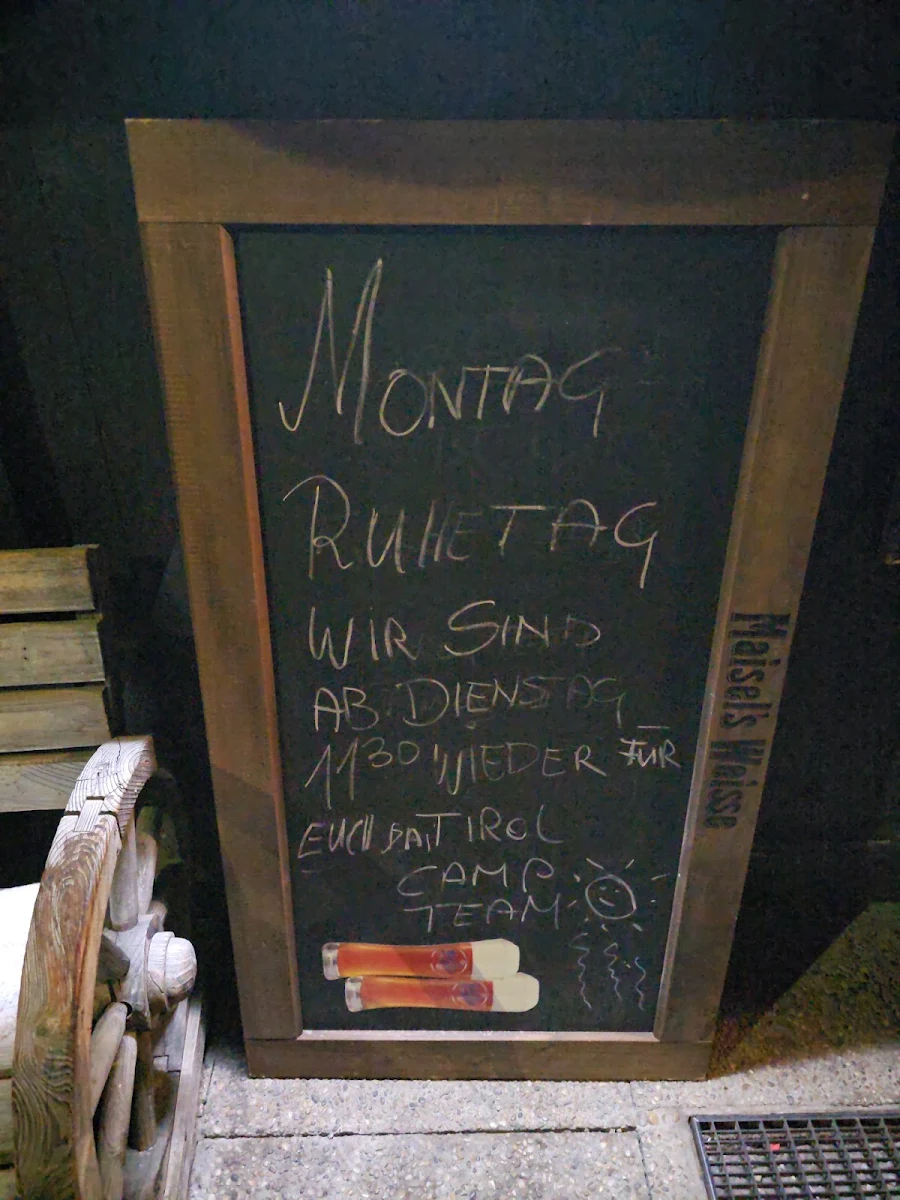 MONTAG
RUHETAG
WIR SIND
AB DIENSTAG
11³⁰ WIEDER FÜR
EUCH DA TIROL
CAMP
TEAM
Maisel's Weisse